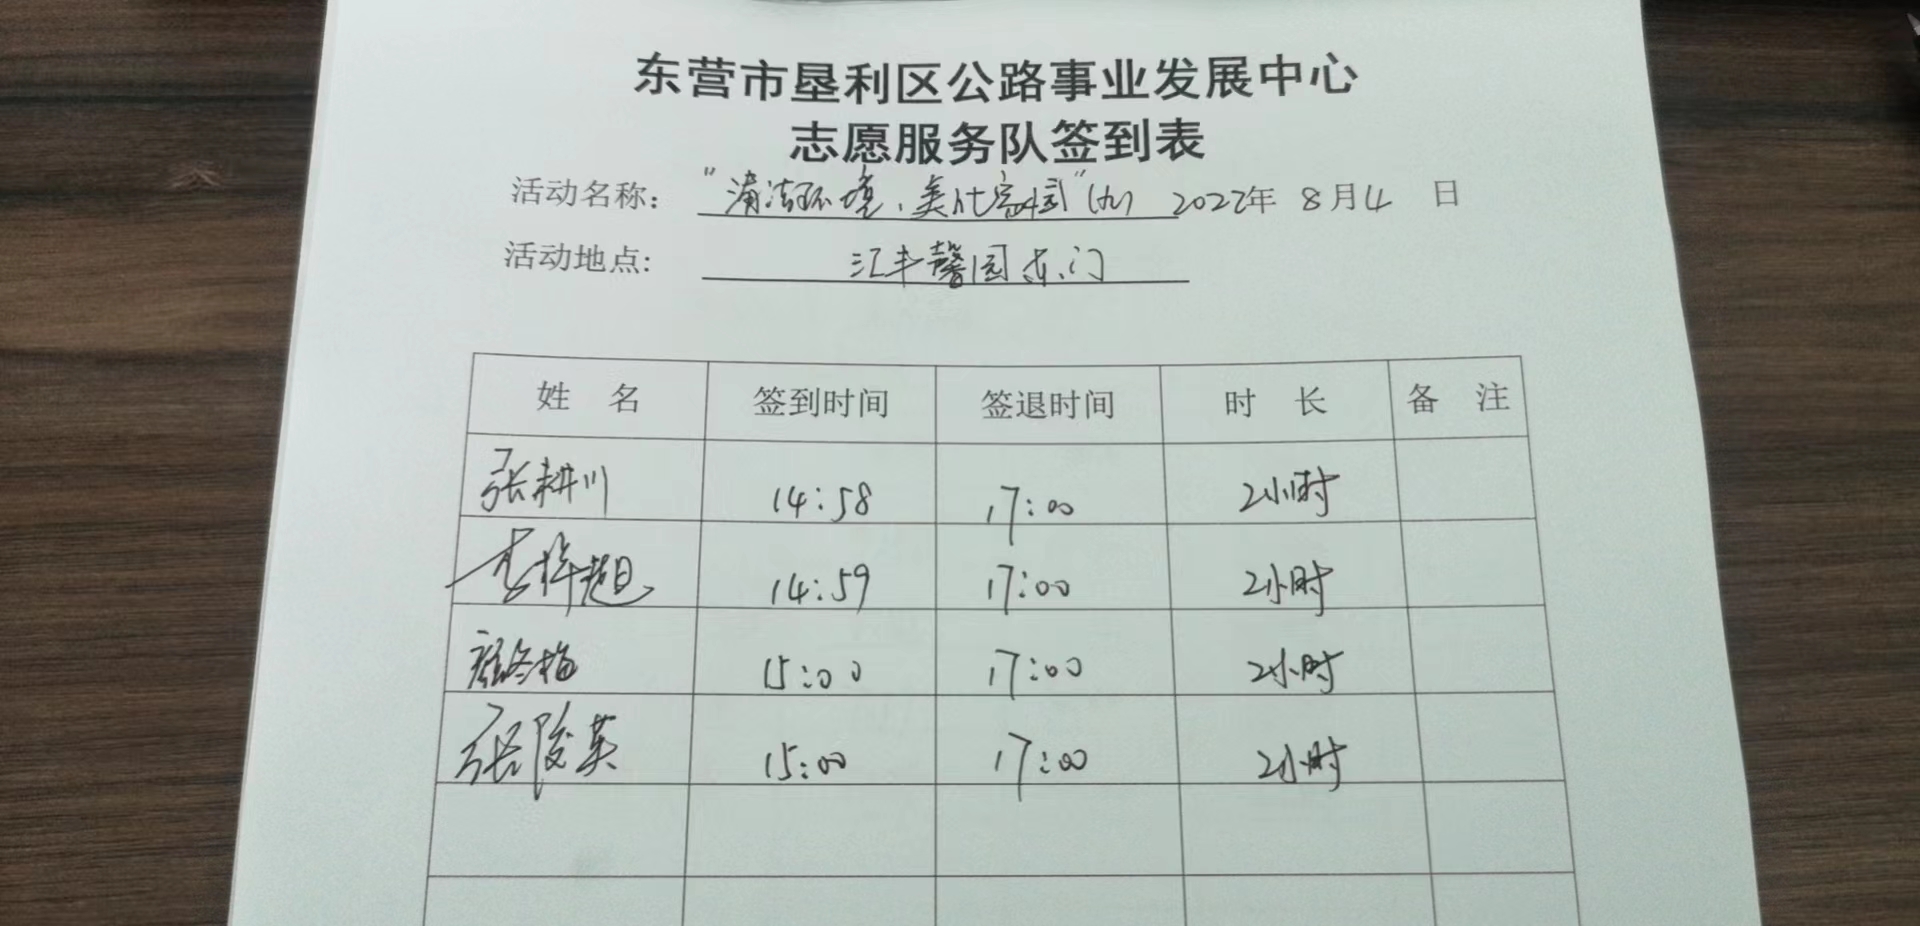 东营市垦利区公路事业发展中心
志愿服务队签到表
活动名称： “清洁环境、美化家园”（九） 2022年 8月4 日
活动地点： 汇丰馨园东门
姓 名 签到时间 签退时间 时 长 备 注
张耕川 14:58 17:00 2小时
李梓超 14:59 17:00 2小时
冬梅 15:00 17:00 2小时
张俊英 15:00 17:00 2小时